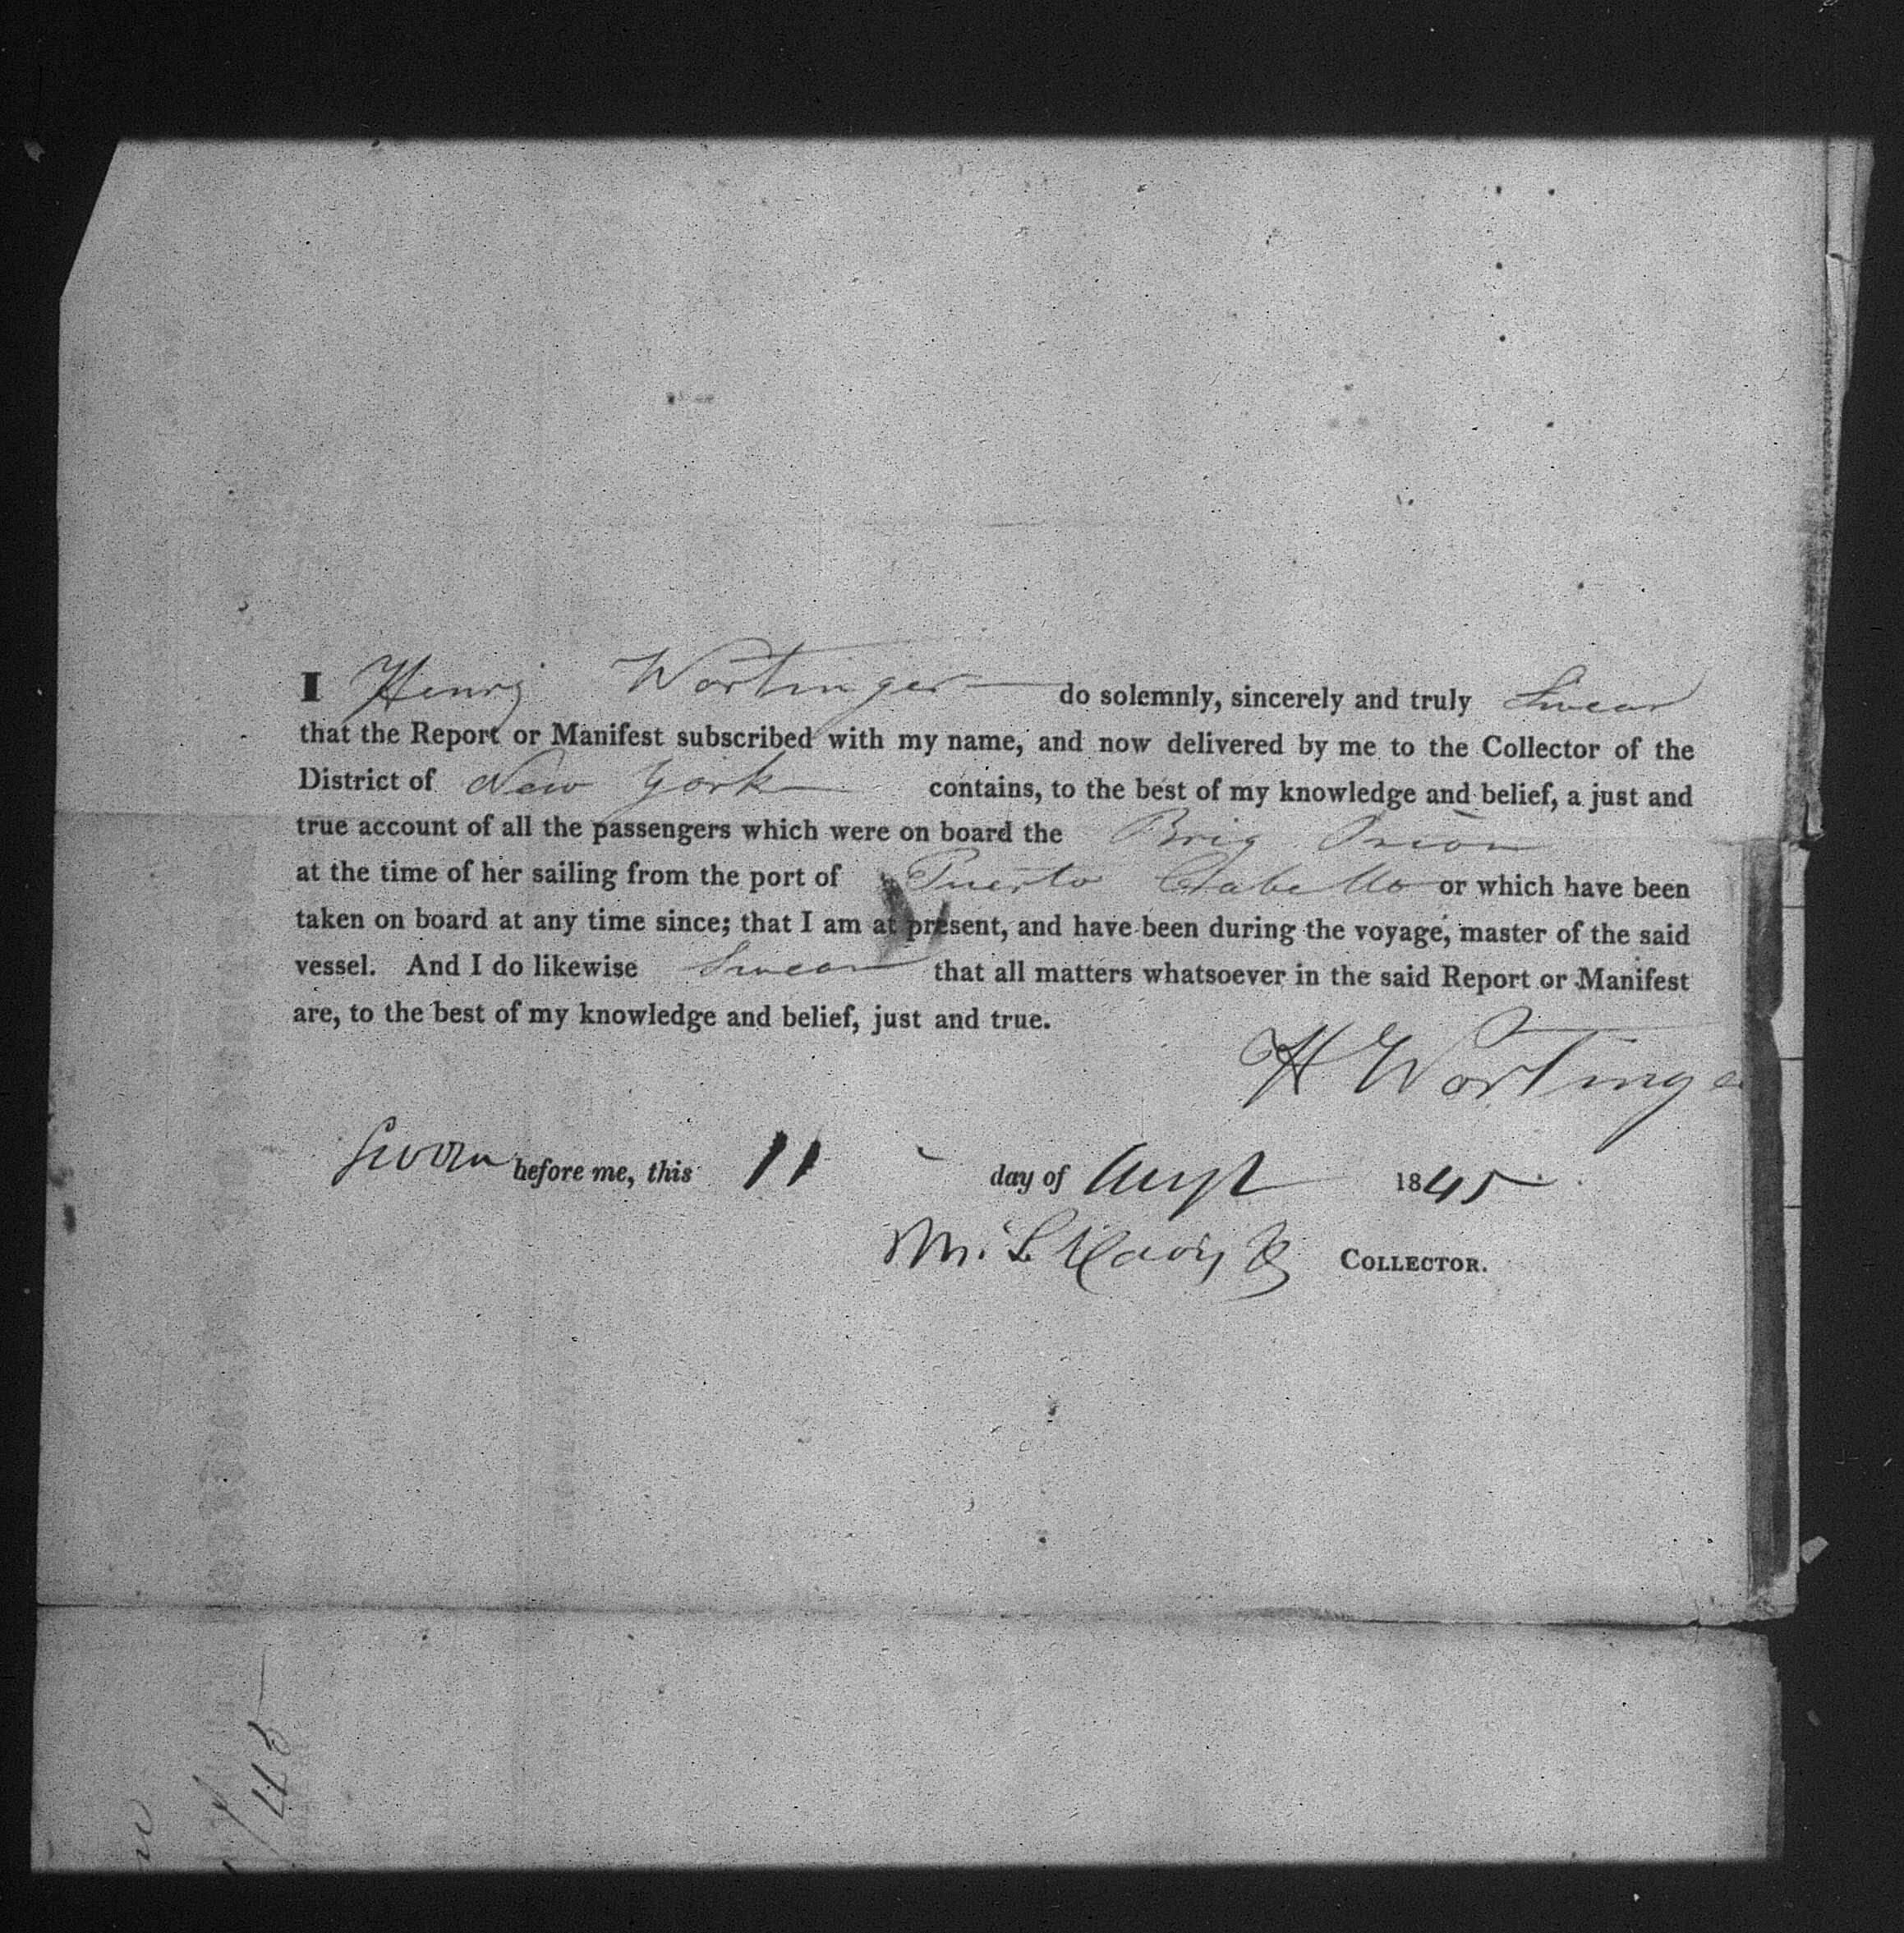 I Henry Wortinger do solemnly, sincerely and truly Swear
that the Report or Manifest subscribed with my name, and now delivered by me to the Collector of the
District of New York contains, to the best of my knowledge and belief, a just and
true account of all the passengers which were on board the Brig
at the time of her sailing from the port of Puerto Cabello or which have been
taken on board at any time since; that I am at present, and have been during the voyage, master of the said
vessel. And I do likewise Swear that all matters whatsoever in the said Report or Manifest
are, to the best of my knowledge and belief, just and true.
H Wortinger
Sworn before me, this 11 day of Augt 1845
COLLECTOR.
45